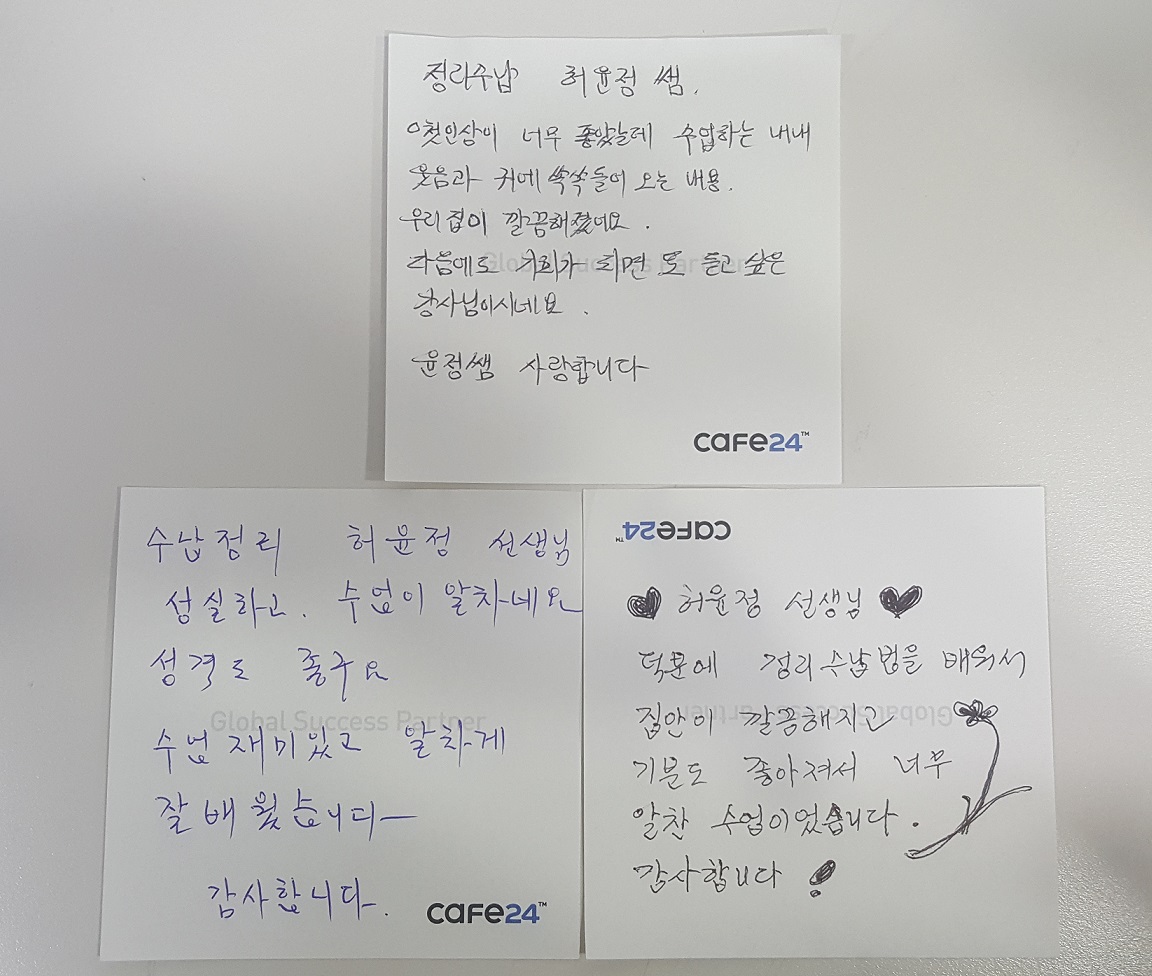 정리수납 허윤정 쌤.
첫인상이 너무 좋았는데 수업하는 내내
웃음과 귀에 쏙쏙들어 오는 내용.
우리집이 깔끔해졌네요.
다음에도 기회가 되면 또 듣고 싶은
강사님이시네요.
윤정쌤 사랑합니다
cafe24™
수납정리 허윤정 선생님
성실하고. 수업이 알차네요
성격도 좋구요
Global Success Partner
수업 재미있고 알차게
잘 배웠습니다
감사합니다.
cafe24™
cafe24™
♥ 허윤정 선생님 ♥
덕분에 정리수납법을 배워서
집안이 깔끔해지고
Global Success Partner
기분도 좋아져서 너무
알찬 수업이었습니다.
감사합니다!